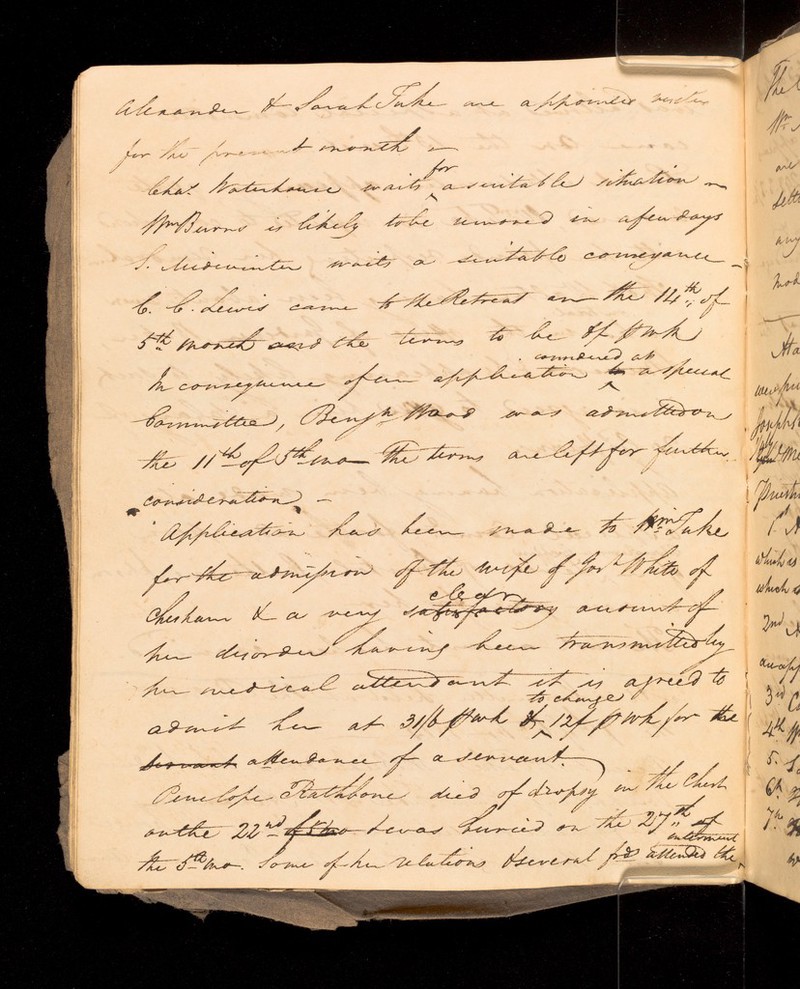 Alexander & Sarah Tuke are appointed visitors
for the present month –
Chas. Waterhouse waits for a suitable situation –
Wm Burns is likely to be removed in a few days
S. Midwinter waits a suitable conveyance –
C. C. Lewis came to the Retreat on the 14th of
5th month and the terms to be 8/ p wk
In consequence of an application considered at a special
Committee, Benjn Wood was admitted on
the 11th of 5th mo The terms are left for further
consideration –
Application has been made to Wm Tuke
for the admission of the wife of Jos. White of
Chesham & a very satisfactory clear account of
her disorder having been transmitted by
her medical attendant it is agreed to
admit her at 31/6 p wk & to charge 12/ p wk for the
servant attendance of a servant.
Penelope Rathbone died of dropsy in the Chest
on the 22nd of 5 mo & was buried on the 27th of
the 5th mo. Some of her relations & several frds attended the
interment
The
Wm
are
any
At a
Joseph
1st
which as
which
2nd
3rd
4th
5.
6th
7th